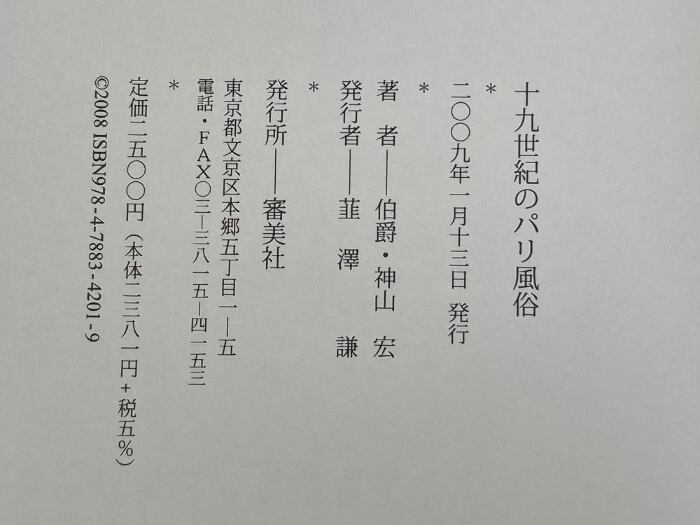 十九世紀のパリ風俗
*
二〇〇九年一月十三日 発行
*
著 者──伯爵・神山 宏
発行者──韮 澤 謙
*
発行所──審美社
東京都文京区本郷五丁目一―五
電話・FAX〇三―三八一五―四一五三
*
定価二五〇〇円(本体二三八一円+税五%)
©2008 ISBN978-4-7883-4201-9